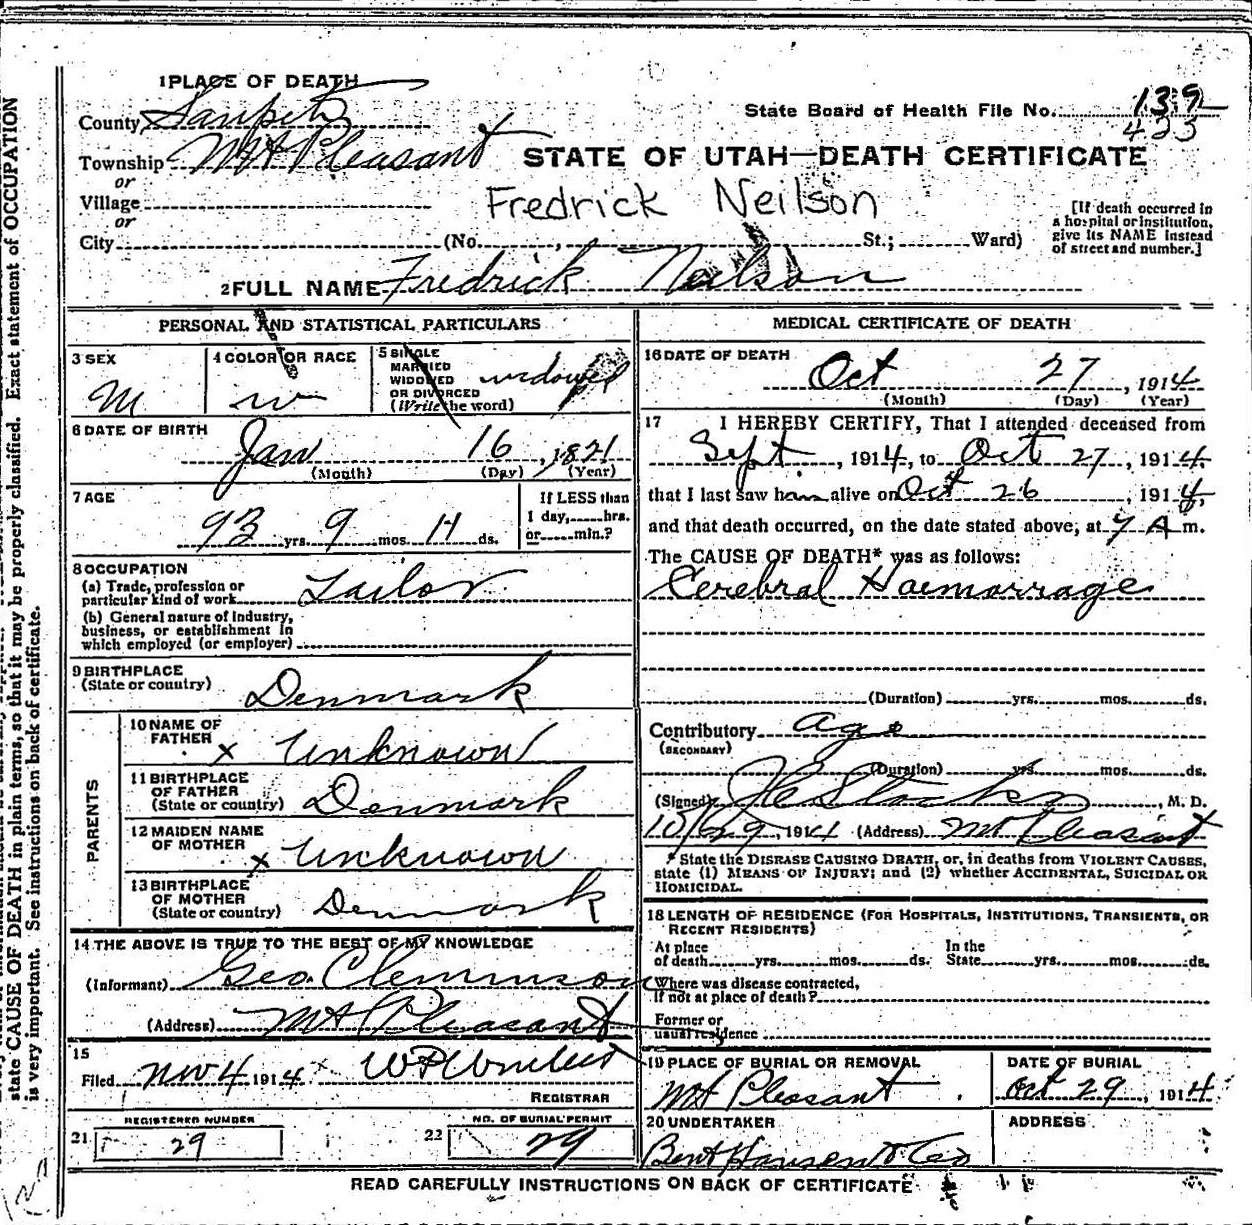 1 PLACE OF DEATH
County Sanpete
State Board of Health File No. 139
423
Township Mt Pleasant
STATE OF UTAH—DEATH CERTIFICATE
or
Village
Fredrick Neilson
or
City (No. , St.; Ward)
[If death occurred in a hospital or institution, give its NAME instead of street and number.]
2 FULL NAME Fredrick Neilson
PERSONAL AND STATISTICAL PARTICULARS
3 SEX
M
4 COLOR OR RACE
W
5 SINGLE
MARRIED
WIDOWED
OR DIVORCED
(Write the word)
widowed
6 DATE OF BIRTH
Jan 16, 1821
(Month) (Day) (Year)
7 AGE
93 yrs. 9 mos. 11 ds.
If LESS than
1 day, hrs.
or min.?
8 OCCUPATION
(a) Trade, profession or
particular kind of work Tailor
(b) General nature of industry,
business, or establishment in
which employed (or employer)
9 BIRTHPLACE
(State or country)
Denmark
PARENTS
10 NAME OF
FATHER
x Unknown
11 BIRTHPLACE
OF FATHER
(State or country) Denmark
12 MAIDEN NAME
OF MOTHER
x Unknown
13 BIRTHPLACE
OF MOTHER
(State or country) Denmark
14 THE ABOVE IS TRUE TO THE BEST OF MY KNOWLEDGE
(Informant) Geo. Clemmson
(Address) Mt Pleasant
15
Filed Nov 4 1914 x
REGISTRAR
REGISTERED NUMBER
21 29
NO. OF BURIAL PERMIT
22 29
MEDICAL CERTIFICATE OF DEATH
16 DATE OF DEATH
Oct 27, 1914
(Month) (Day) (Year)
17 I HEREBY CERTIFY, That I attended deceased from
Sept , 1914, to Oct 27, 1914
that I last saw him alive on Oct 26, 1914,
and that death occurred, on the date stated above, at 7 A m.
The CAUSE OF DEATH* was as follows:
Cerebral Haemorrage
(Duration) yrs. mos. ds.
Contributory age
(SECONDARY)
(Duration) yrs. mos. ds.
(Signed) , M. D.
10/29, 1914 (Address) Mt Pleasant
* State the DISEASE CAUSING DEATH, or, in deaths from VIOLENT CAUSES,
state (1) MEANS OF INJURY; and (2) whether ACCIDENTAL, SUICIDAL OR
HOMICIDAL.
18 LENGTH OF RESIDENCE (FOR HOSPITALS, INSTITUTIONS, TRANSIENTS, OR
RECENT RESIDENTS)
At place
of death yrs. mos. ds.
In the
State yrs. mos. ds.
Where was disease contracted,
if not at place of death?
Former or
usual residence
19 PLACE OF BURIAL OR REMOVAL
Mt Pleasant
DATE OF BURIAL
Oct 29, 1914
20 UNDERTAKER
Bent Hansen & Co
ADDRESS
READ CAREFULLY INSTRUCTIONS ON BACK OF CERTIFICATE
state CAUSE OF DEATH in plain terms, so that it may be properly classified. Exact statement of OCCUPATION
is very important. See instructions on back of certificate.